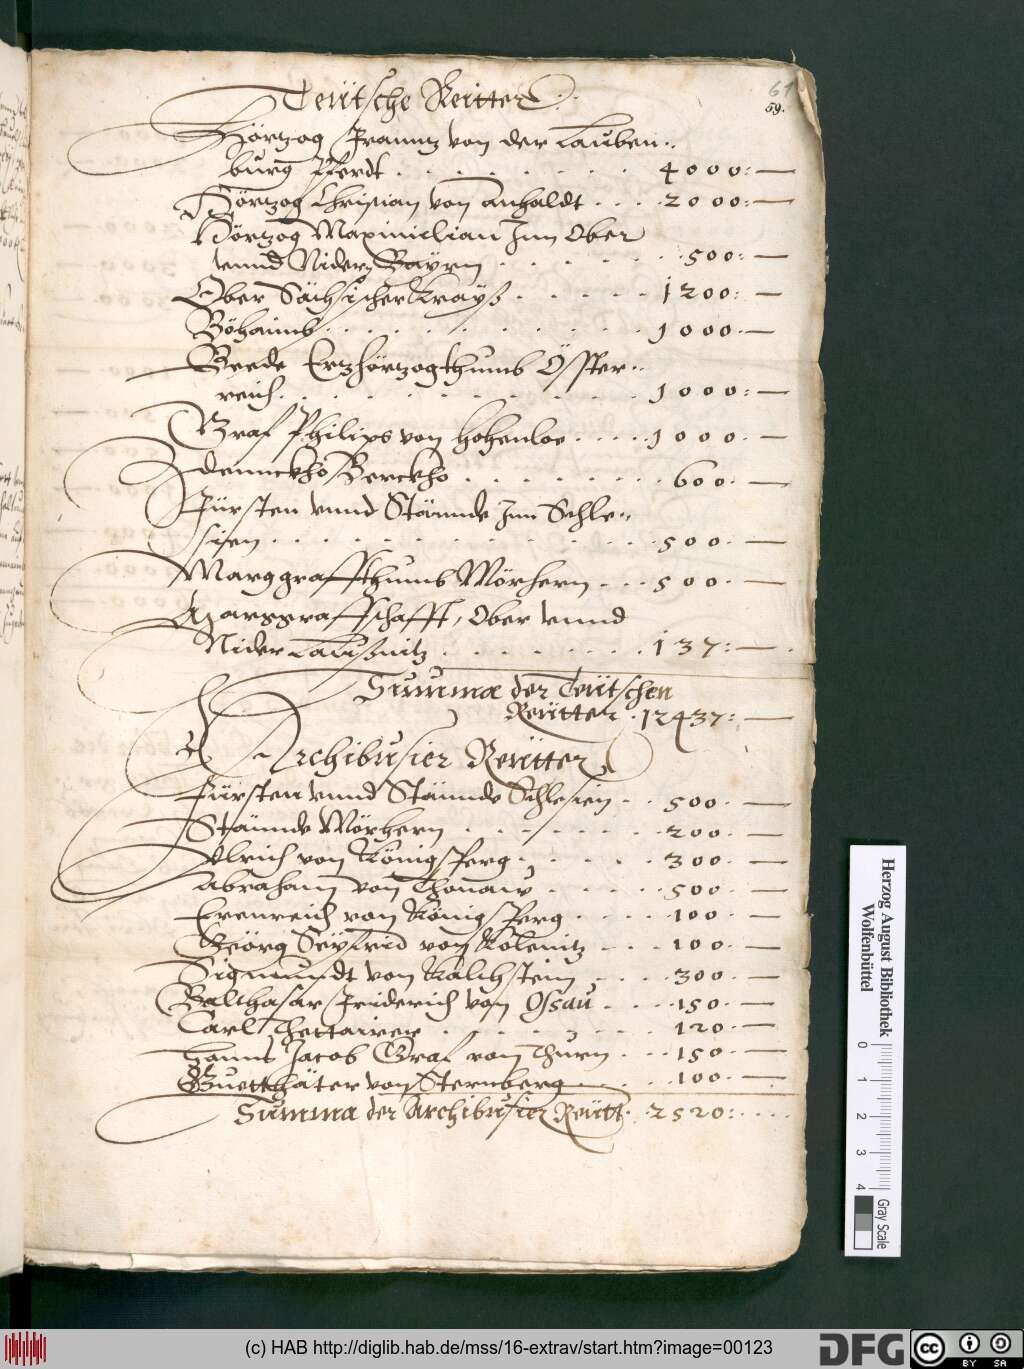 61
59.
Teütsche Reitter
Hörtzog Franntz von der Lauben„
burg Pferdt . . . . . . . 4000:—
Hörtzog Christian von Anhaldt . . . . 2000:—
Hörtzog Maximilian Inn Ober
vnnd Nider Bayrn . . . . . . . 500:—
Ober Sächsischer Krayß . . . . . 1200:—
Böhaimb . . . . . . . . . 1000.—
Beede Ertzhörtzogthumb Össter„
reich . . . . . . . . . . 1000:—
Graf Philips von Hohenloe . . . . 1000.—
Berckho . . . . . . . 600:—
Fürsten vnnd Stännde Inn Schle„
sien . . . . . . . . . . 500.—
Marggraffthumb Mörhern . . . 500.—
Marggraffschafft, Ober vnnd
Nider Laußnitz . . . . . . . 137:—
Summa der Teütschen
Reütter . 12437:—
Archibusier Reütter
Fürsten vnnd Stännde Schlesien . . 500.—
Stännde Mörhern . . . . . . 200.—
Vlrich von Königsperg . . . . . 300.—
Abraham von Thonaw . . . . . 500.—
Erenreich von Königsperg . . . . 100.—
Geörg Seyfrid von Kolenitz . . . 100.—
Sigmundt von Kalchstein . . . . 300.—
Balthasar Friderich von Ossau . . . . 150.—
Carl . . . . . . . 120.—
Hannß Jacob Graf von Thurn . . . 150.—
von Sternberg . . . 100.—
Summa der Archibusier Reütt. . 2520:. . . .
Herzog August Bibliothek
Wolfenbüttel
0 1 2 3 4
Gray Scale
(c) HAB http://diglib.hab.de/mss/16-extrav/start.htm?image=00123
DFG
cc
BY SA